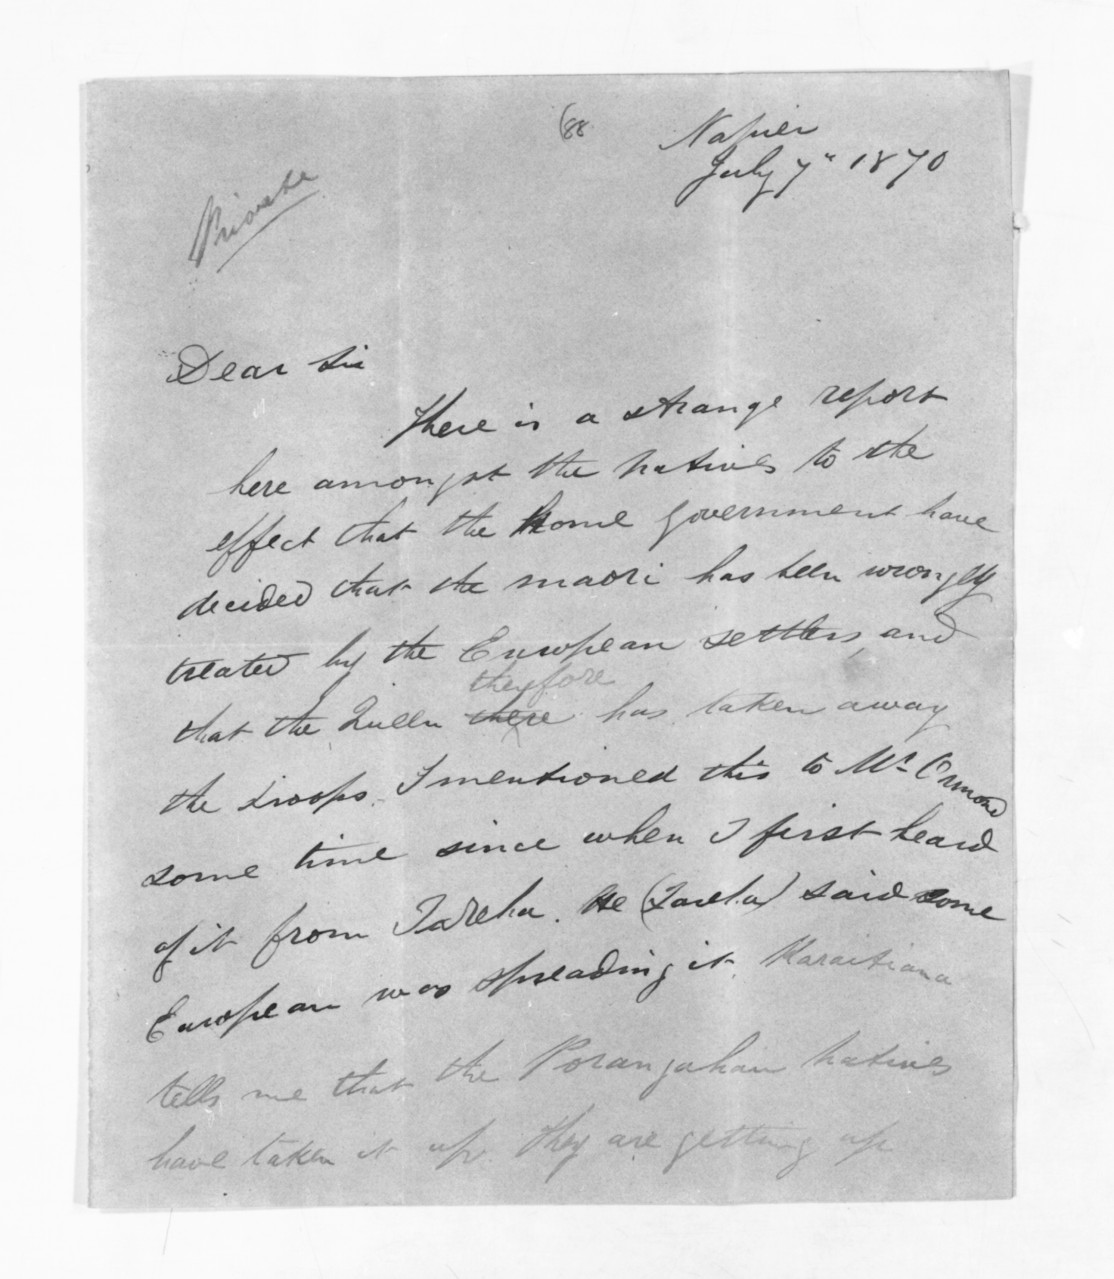 88
Napier
July 7" 1870
Private
Dear Sir
There is a strange report
here amongst the natives to the
effect that the home government have
decided that the maori has been wrongly
treated by the European settlers, and
therefore
that the Queen there has taken away
the troops. I mentioned this to Mr. Ormond
some time since when I first heard
of it from Tareha. He (Tareha) said some
European was spreading it. Karaitiana
tells me that the Porangahau natives
have taken it up. They are getting up